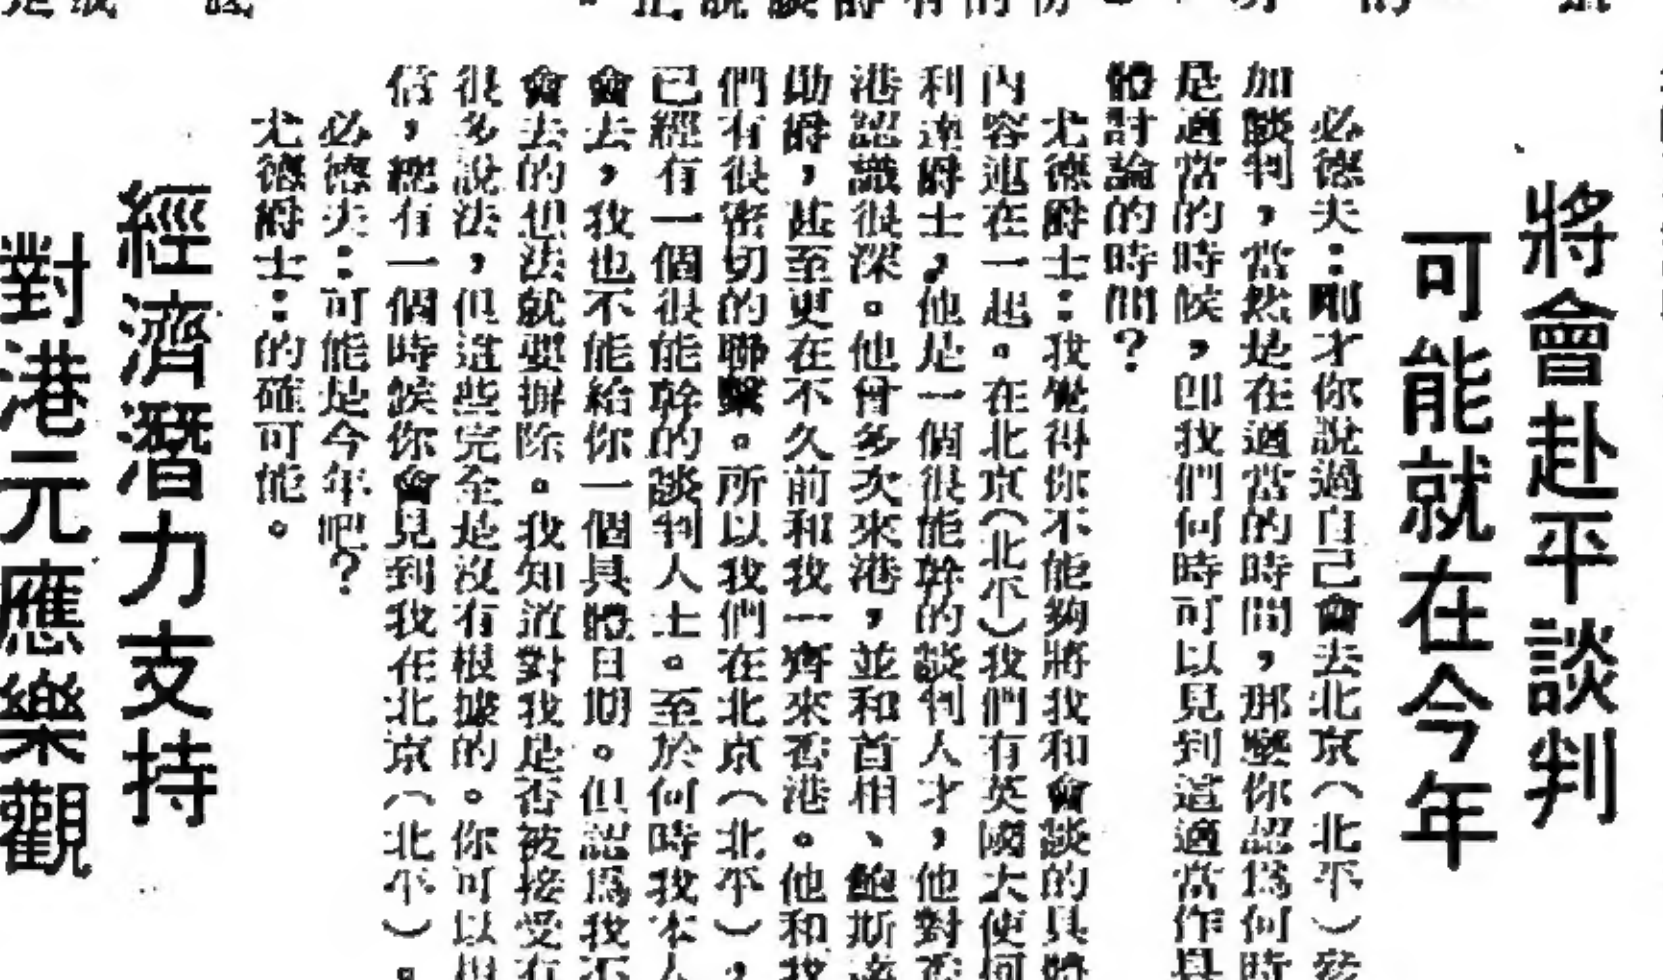 將會赴平談判
可能就在今年
必德夫：剛才你說過自己會去北京（北平）參
加談判，當然是在適當的時間，那麼你認爲何時
是適當的時候，即我們何時可以見到這適當作具
體討論的時間？
尤德爵士：我覺得你不能夠將我和會談的具體
內容連在一起。在北京（北平）我們有英國大使何
利達爵士，他是一個很能幹的談判人才，他對香
港認識很深。他曾多次來港，並和首相、鮑斯
勛爵，甚至更在不久前和我一齊來香港。他和我
們有很密切的聯繫。所以我們在北京（北平），
已經有一個很能幹的談判人士。至於何時我本人
會去，我也不能給你一個具體日期。但認爲我不
會去的想法就要摒除。我知道對我是否被接受有
很多說法，但這些完全是沒有根據的。你可以相
信，總有一個時候你會見到我在北京（北平）。
必德夫：可能是今年吧？
尤德爵士：的確可能。
經濟潛力支持
對港元應樂觀